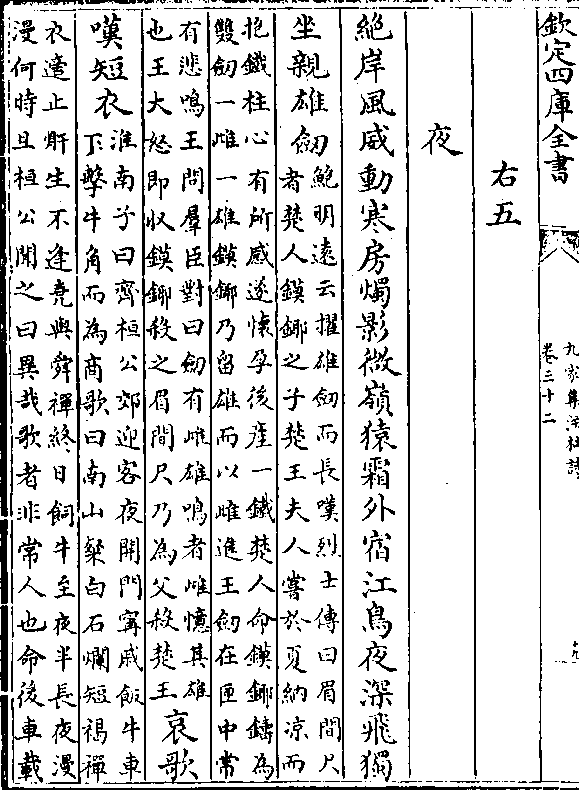 欽定四庫全書
九家集注杜詩
卷三十二
右五
夜
絶岸風威動寒房燭影微嶺猿霜外宿江鳥夜深飛獨
坐親雄劒鮑明遠云擢雄劒而長嘆烈士傳曰眉間尺
者楚人鏌鎁之子楚王夫人嘗於夏納凉而
抱鐵柱心有所感遂懷孕後産一鐵楚人命鏌鎁鑄為
雙劒一雌一雄鏌鎁乃留雄而以雌進王劒在匣中常
有悲鳴王問羣臣對曰劒有雌雄鳴者雌憶其雄
也王大怒即收鏌鎁殺之眉間尺乃為父殺楚王哀歌
嘆短衣淮南子曰齊桓公郊迎客夜開門甯戚飯牛車
下擊牛角而為商歌曰南山粲白石爛短褐襌
衣遶止骭生不逢堯與舜禪終日飼牛至夜半長夜漫
漫何時旦桓公聞之曰異哉歌者非常人也命後車載